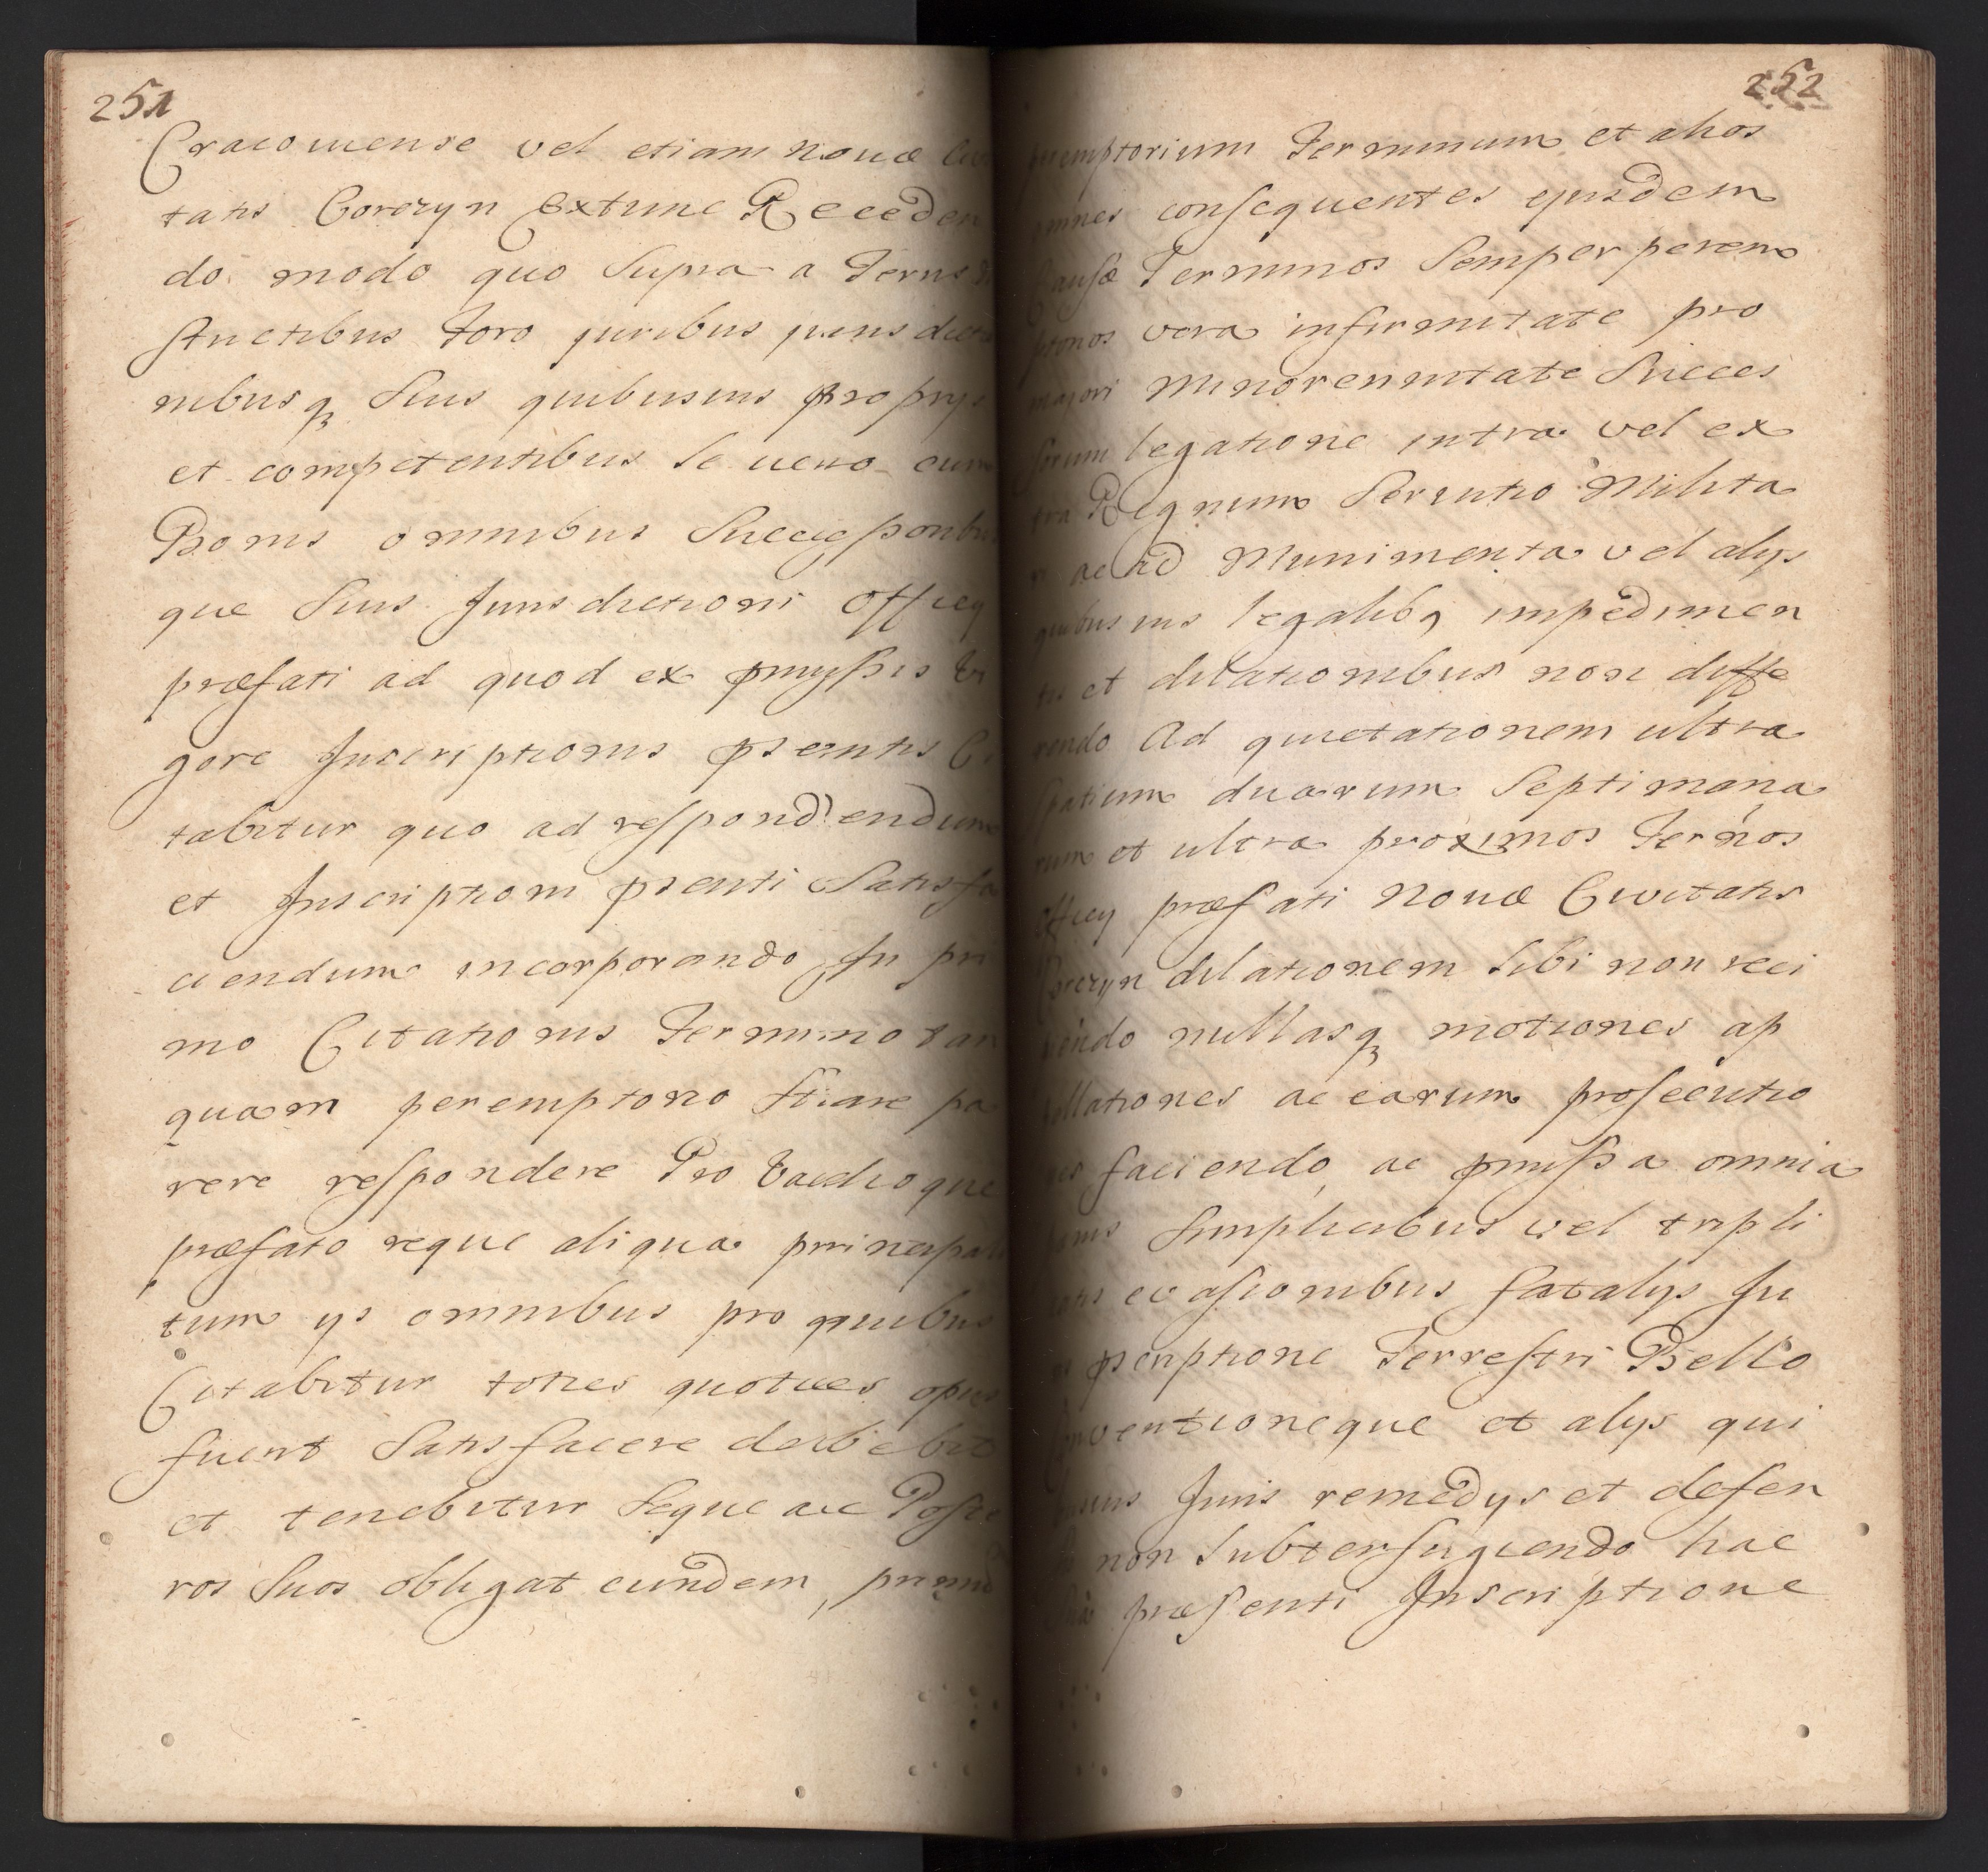 251
Cracouiense vel etiam nouæ Ciui
tatis Corczyn Extunc Receden
do modo quo Supra a Terris Di
strictibus foro juribus jurisdictio
nibusq₃ Suis quibusuis proprys
et competentibus Se uero cum
Bonis omnibus Successoribus
que Suis Jurisdictioni Officy
præfati ad quod ex pmyssis Vi
gore Inscriptionis psentis Ci
tabitur quo ad respondendum
et Inscriptioni psenti Satisfa
ciendum incorporando, In pri
mo Citationis Termino tan
quam peremptorio Stare pa
rere respondere Pro Vadioque
præfato reque aliqua principali
tum ys omnibus pro quibus
Citabitur toties quoties opus
fuerit Satisfacere debebit
et tenebitur Seque ac Poste
ros Suos obligat eundem, primu
252
peremptorium Terminum et alios
omnes consequentes ejusdem
Causæ Terminos Semper perem
ptorios vera infirmitate pro
majori Minorennitate Succes
sorum legatione intra vel ex
tra Regnum Seruitio Milita
ri ac ad Munimenta vel alys
quibusuis legalibq impedimen
tis et dilationibus non diffe
rendo Ad quietationem ultra
Spatium duarum Septimana
rum et ultra proximos Termos
Officy præfati Nouæ Civitatis
Corczyn dilationem Sibi non reci
piendo nullasq₃ motiones ap
pellationes ac earum prosecutio
nes faciendo, ac pmissa omnia
Simplicibus vel tripli
evasionibus fatalys In
pscriptione Terrestri Bello
Conventioneque et alys qui
busuis Juris remedys et defen
non Subterfugiendo hac
præsenti Inscriptione